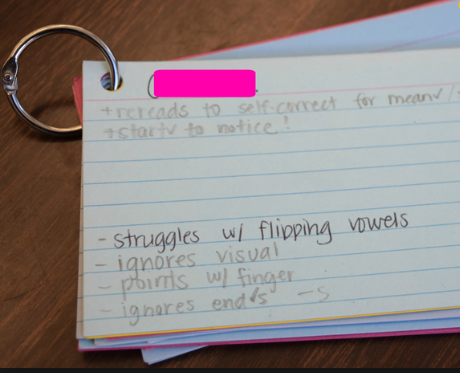 +rereads to self-correct for mean
+start to notice!
- struggles w/ flipping vowels
- ignores visual
- points w/ finger
- ignores end -s